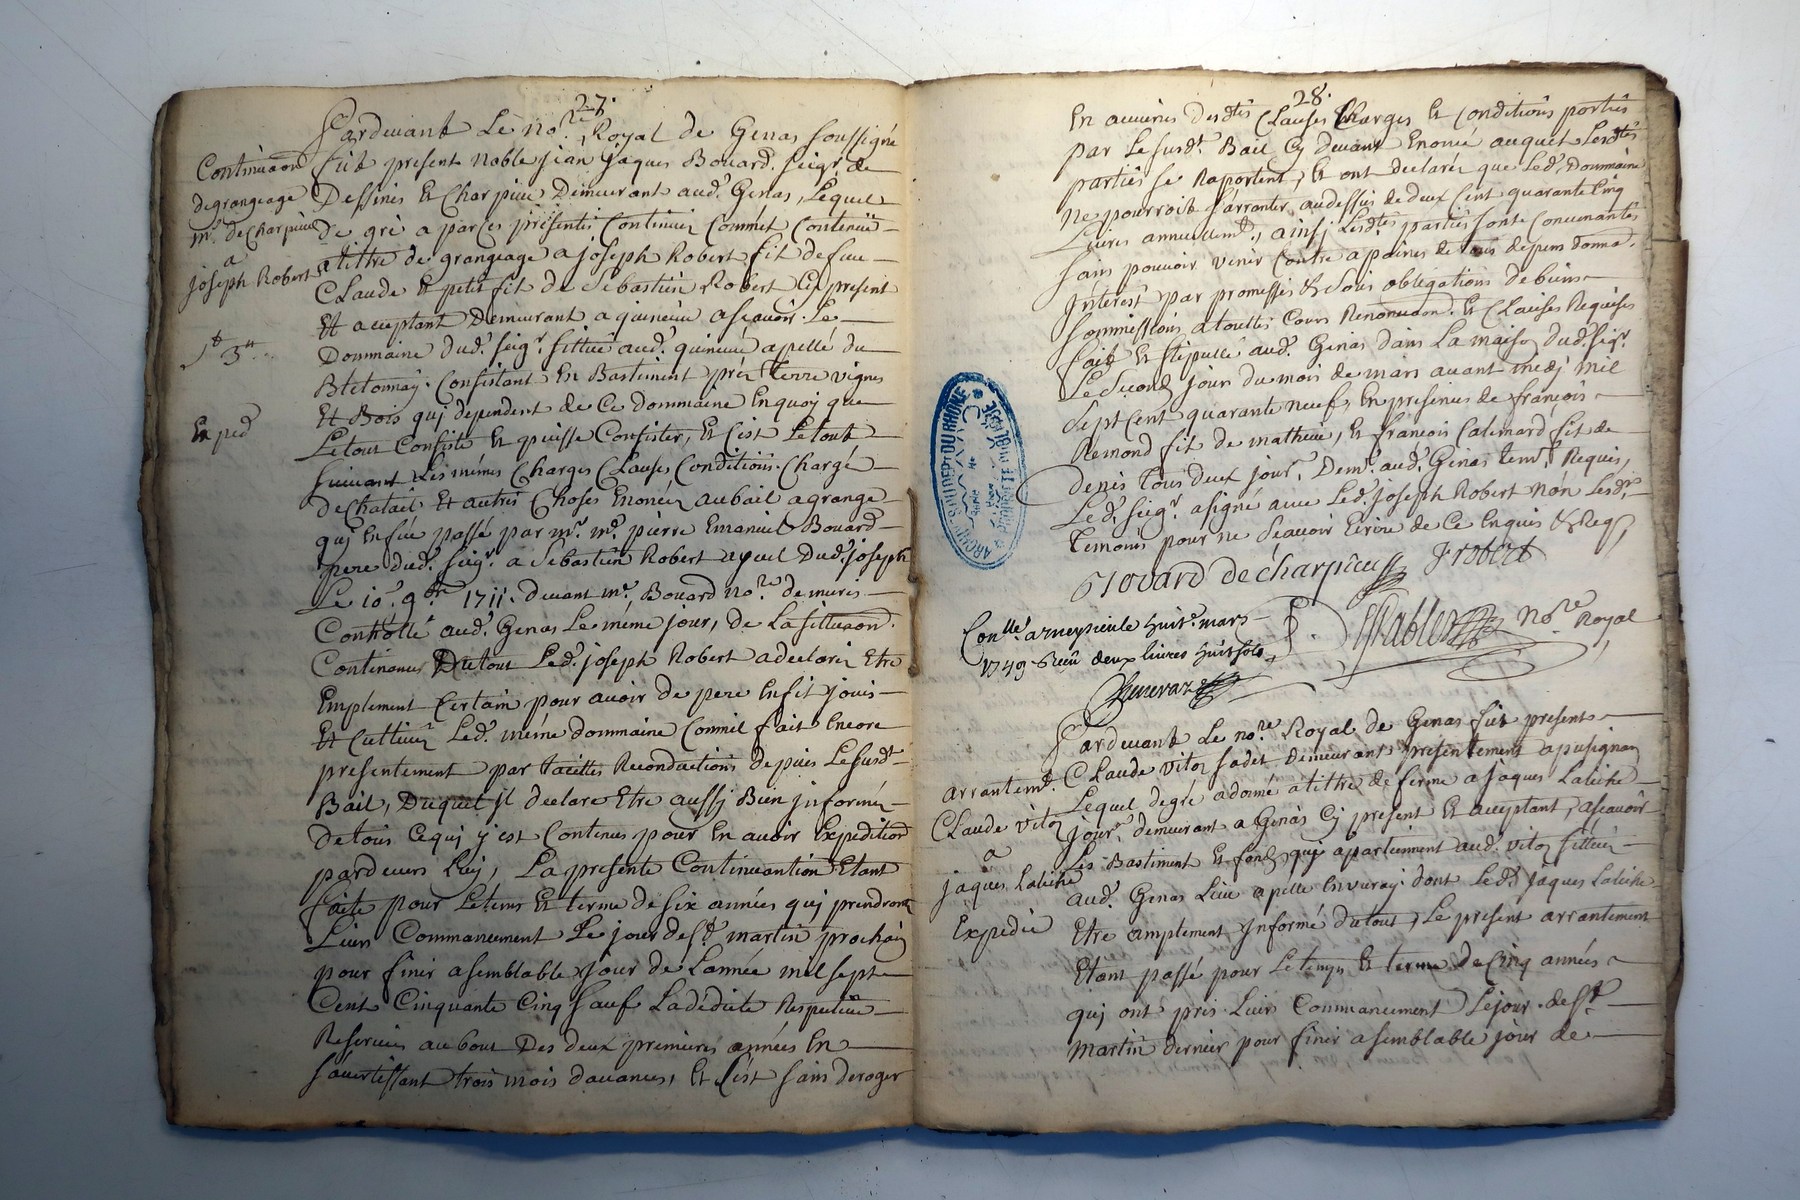 27.
Pardevant Le no.re Royal de Genas soussigné
fut present noble jean jaques Bouard. seigr. de
Dessines et Charpieu Demeurant aud. Genas, Lequel
De gré a par ces presentes Continué Comme Continue
a tittre de grangeage a joseph Robert fit de feu
Claude et petit fit de Sebastien Robert Cy present
Et acceptant Demeurant a quineuu ascavoir Le
Dommaine dud. seigr. sittué aud. quineuu apellé du
Consistant En Bastiment prez terre vignes
Et Bois quj dependent de Ce dommaine En quoy que
Le tout Consiste Et puisse Consister, Et C'est Le tout
suivant Les mémes Charges Clauses Conditions Chargé
De Chatail Et autres Choses Enoncéz au bail a grange
quj En fut passé par mr. me. pierre Emanuel Bouard
pere dud. seigr. a Sebastien Robert ayeul dud. joseph
Le 10.e 9.bre 1711. devant mr. Bouard no.re de mures
Controllé aud. Genas Le méme jour, de La sittuaon.
Continances Du tout Led. joseph Robert a declaré Etre
Emplement Certain pour avoir de pere En fit jouis
Et Cultivéz Led. méme dommaine Comm'il fait Encore
presentement par tacittes Recondactions depuis Le susdt.
Bail, Duquel jl declare Etre aussy Bien jnformé
De tous Ce quj y est Contenus pour En avoir Expedition
par devers Luy, La presente Continuantion Etant
faite pour Le tems Et terme de six années quj prendront
Leur Commancement Le jour de St. martin prochain
pour finir a semblable jour de L'année mil sept
Cent Cinquante Cinq sauf La dédicte Respective
Reservées au bout Des deux premieres années En
s'avertissant trois mois d'avances, Et C'est sans deroger
Continuaon
de grangeage
mr. de Charpieu
a
joseph Robert
3
Exped
28.
En aucunes desdtes Clauses Charges Et Conditions portées
par Le susdt. Bail Cy devant Enoncé auquel Lesdtes
parties se Raportent, Et ont declaré que Led. Dommaine
ne pourroit s'arranter au dessus de deux Cent quarante Cinq
Livres annuelemt., ainsj Lesdtes parties sont Convenantes
sans pouvoir venir Contre a peines de tous depens domma.
jnterest par promesses & sous obligations de biens
sommissions a touttes Cours Renonciaon. Et Clauses Requises
fait Et stipullé aud. Genas dans La maison dud. seigr.
Le Second jour du mois de mars avant midj mil
sept Cent quarante neuf, En presences de françois
Remond fit de mathieu, Et françois Calemard fit de
Denis Tous deux jourr. Demt. aud. Genas temt. Requis,
Led. seigr. a signé avec Led. joseph Robert non Lesdts.
temoins pour ne Scavoir Ecrire de Ce Enquis & Req.
Bovard de charpieu J robert
no.re Royal
Conlle. a meyzieule huit.e mars
1749 Reçu deux livres huit sols
Pardevant Le no.re Royal de Genas fut present
Claude vitoz sadet Demeurant presentement a pusignan
Lequel de gré a donné a tittre de ferme a jaques Laliche
jourr. demeurant a Genas Cy present Et acceptant, ascavoir
Les Bastiment Et fonds quj apartiennent aud. vitoz sittués
aud. Genas Lieu apellé Envuray dont Led. jaques Laliche
Etre amplement jnformé du tout, Le present arrantement
Etant passé pour Le temps Et terme de Cinq années
quj ont pris Leurs Commancement Le jour de St.
Martin dernier pour finir a semblable jour de
arrantemt.
Claude vitoz
a
jaques Laliche
Expedié
ARCHIVES DEP. DU RHONE